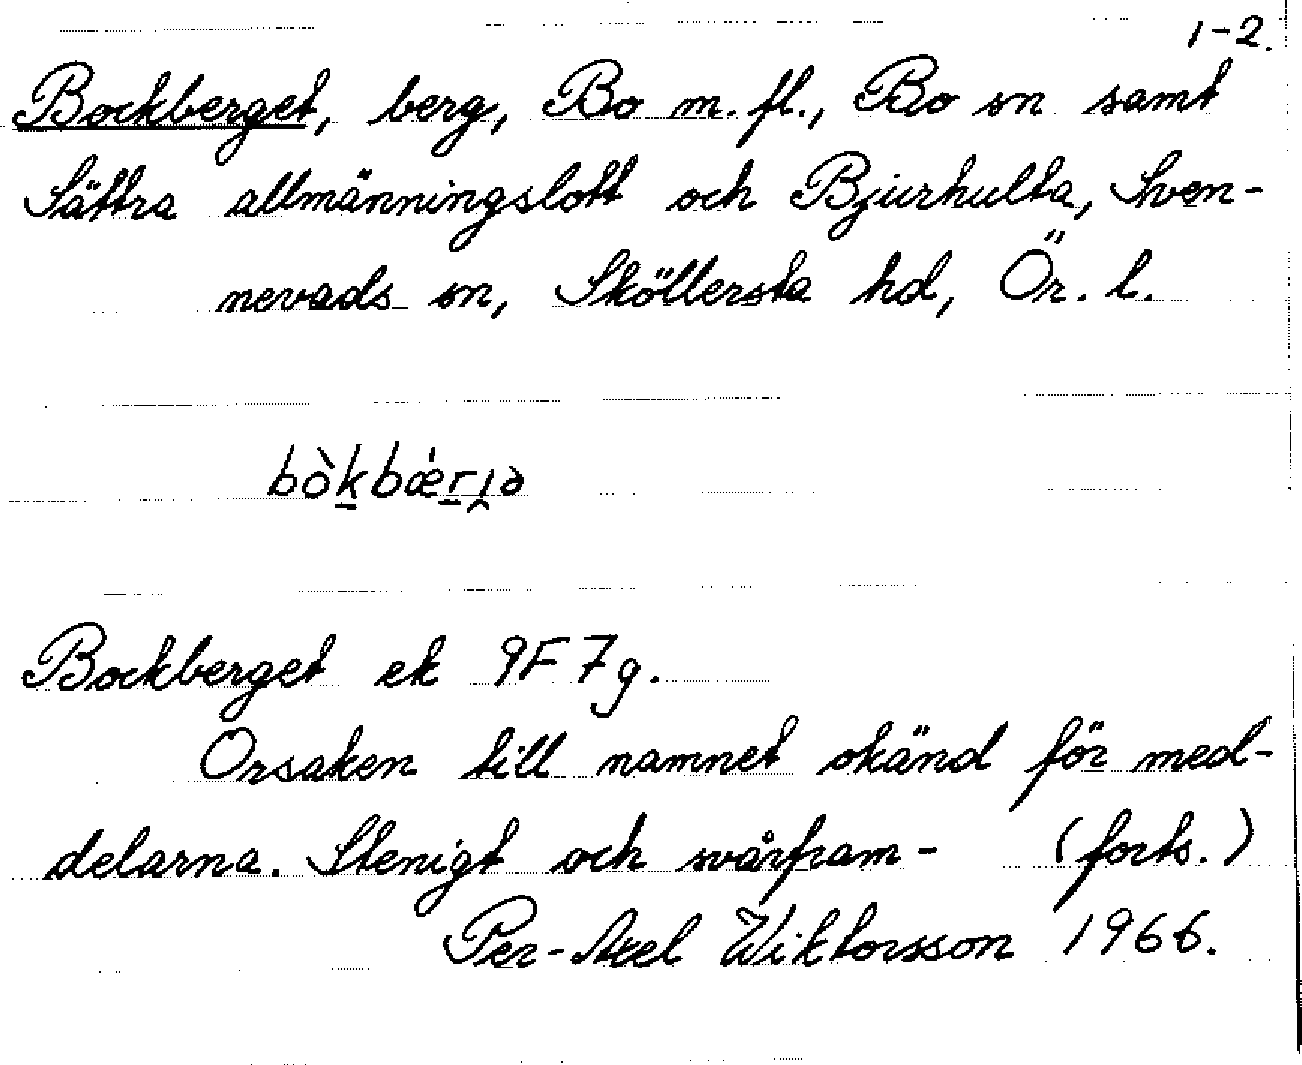 1-2.
Bockberget, berg, Bo m.fl., Bo sn samt
Sättra allmänningslott och Bjurhulta, Sven-
nevads sn, Sköllersta hd, Ör. l.
bòkbæ̀rɪə
Bockberget ek 9F 7g.
Orsaken till namnet okänd för med-
delarna. Stenigt och svårfram- (forts.)
Per-Axel Wiktorsson 1966.